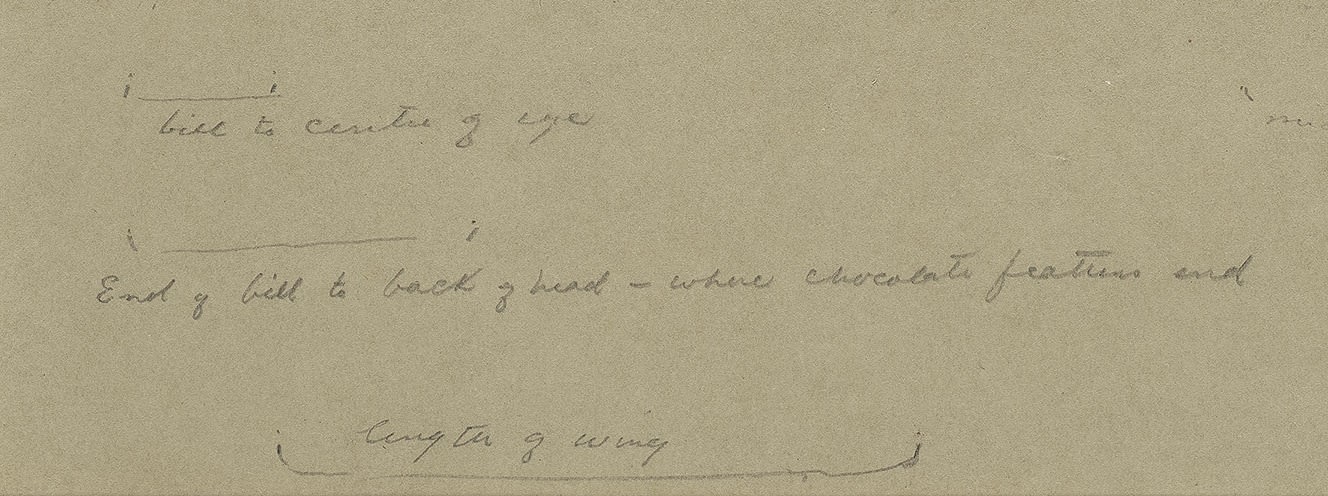 bill to centre of eye
End of bill to back of head – where chocolate feathers end
length of wing